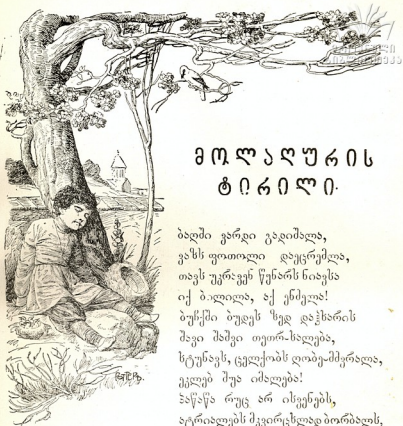 მოლაღურის
ტირილი.
ბაღში ვარდი გადიშალა,
ვაზს ფოთოლი დაუცრემლა,
თავს უკრავენ წყნარს ნიავსა
იქ ბალილა, აქ ენძელა!
ბუჩქში ბუდეს ზედ დაჰხარის
შავი შაშვი თეთრ-ხალება,
სტუნავს, ცელქობს ღობე-მძვრალა,
ეკლებ შუა იმალება!
პაწაწა რუც არ ისვენებს,
ატრიალებს მკვირცხლად ბორბალს,